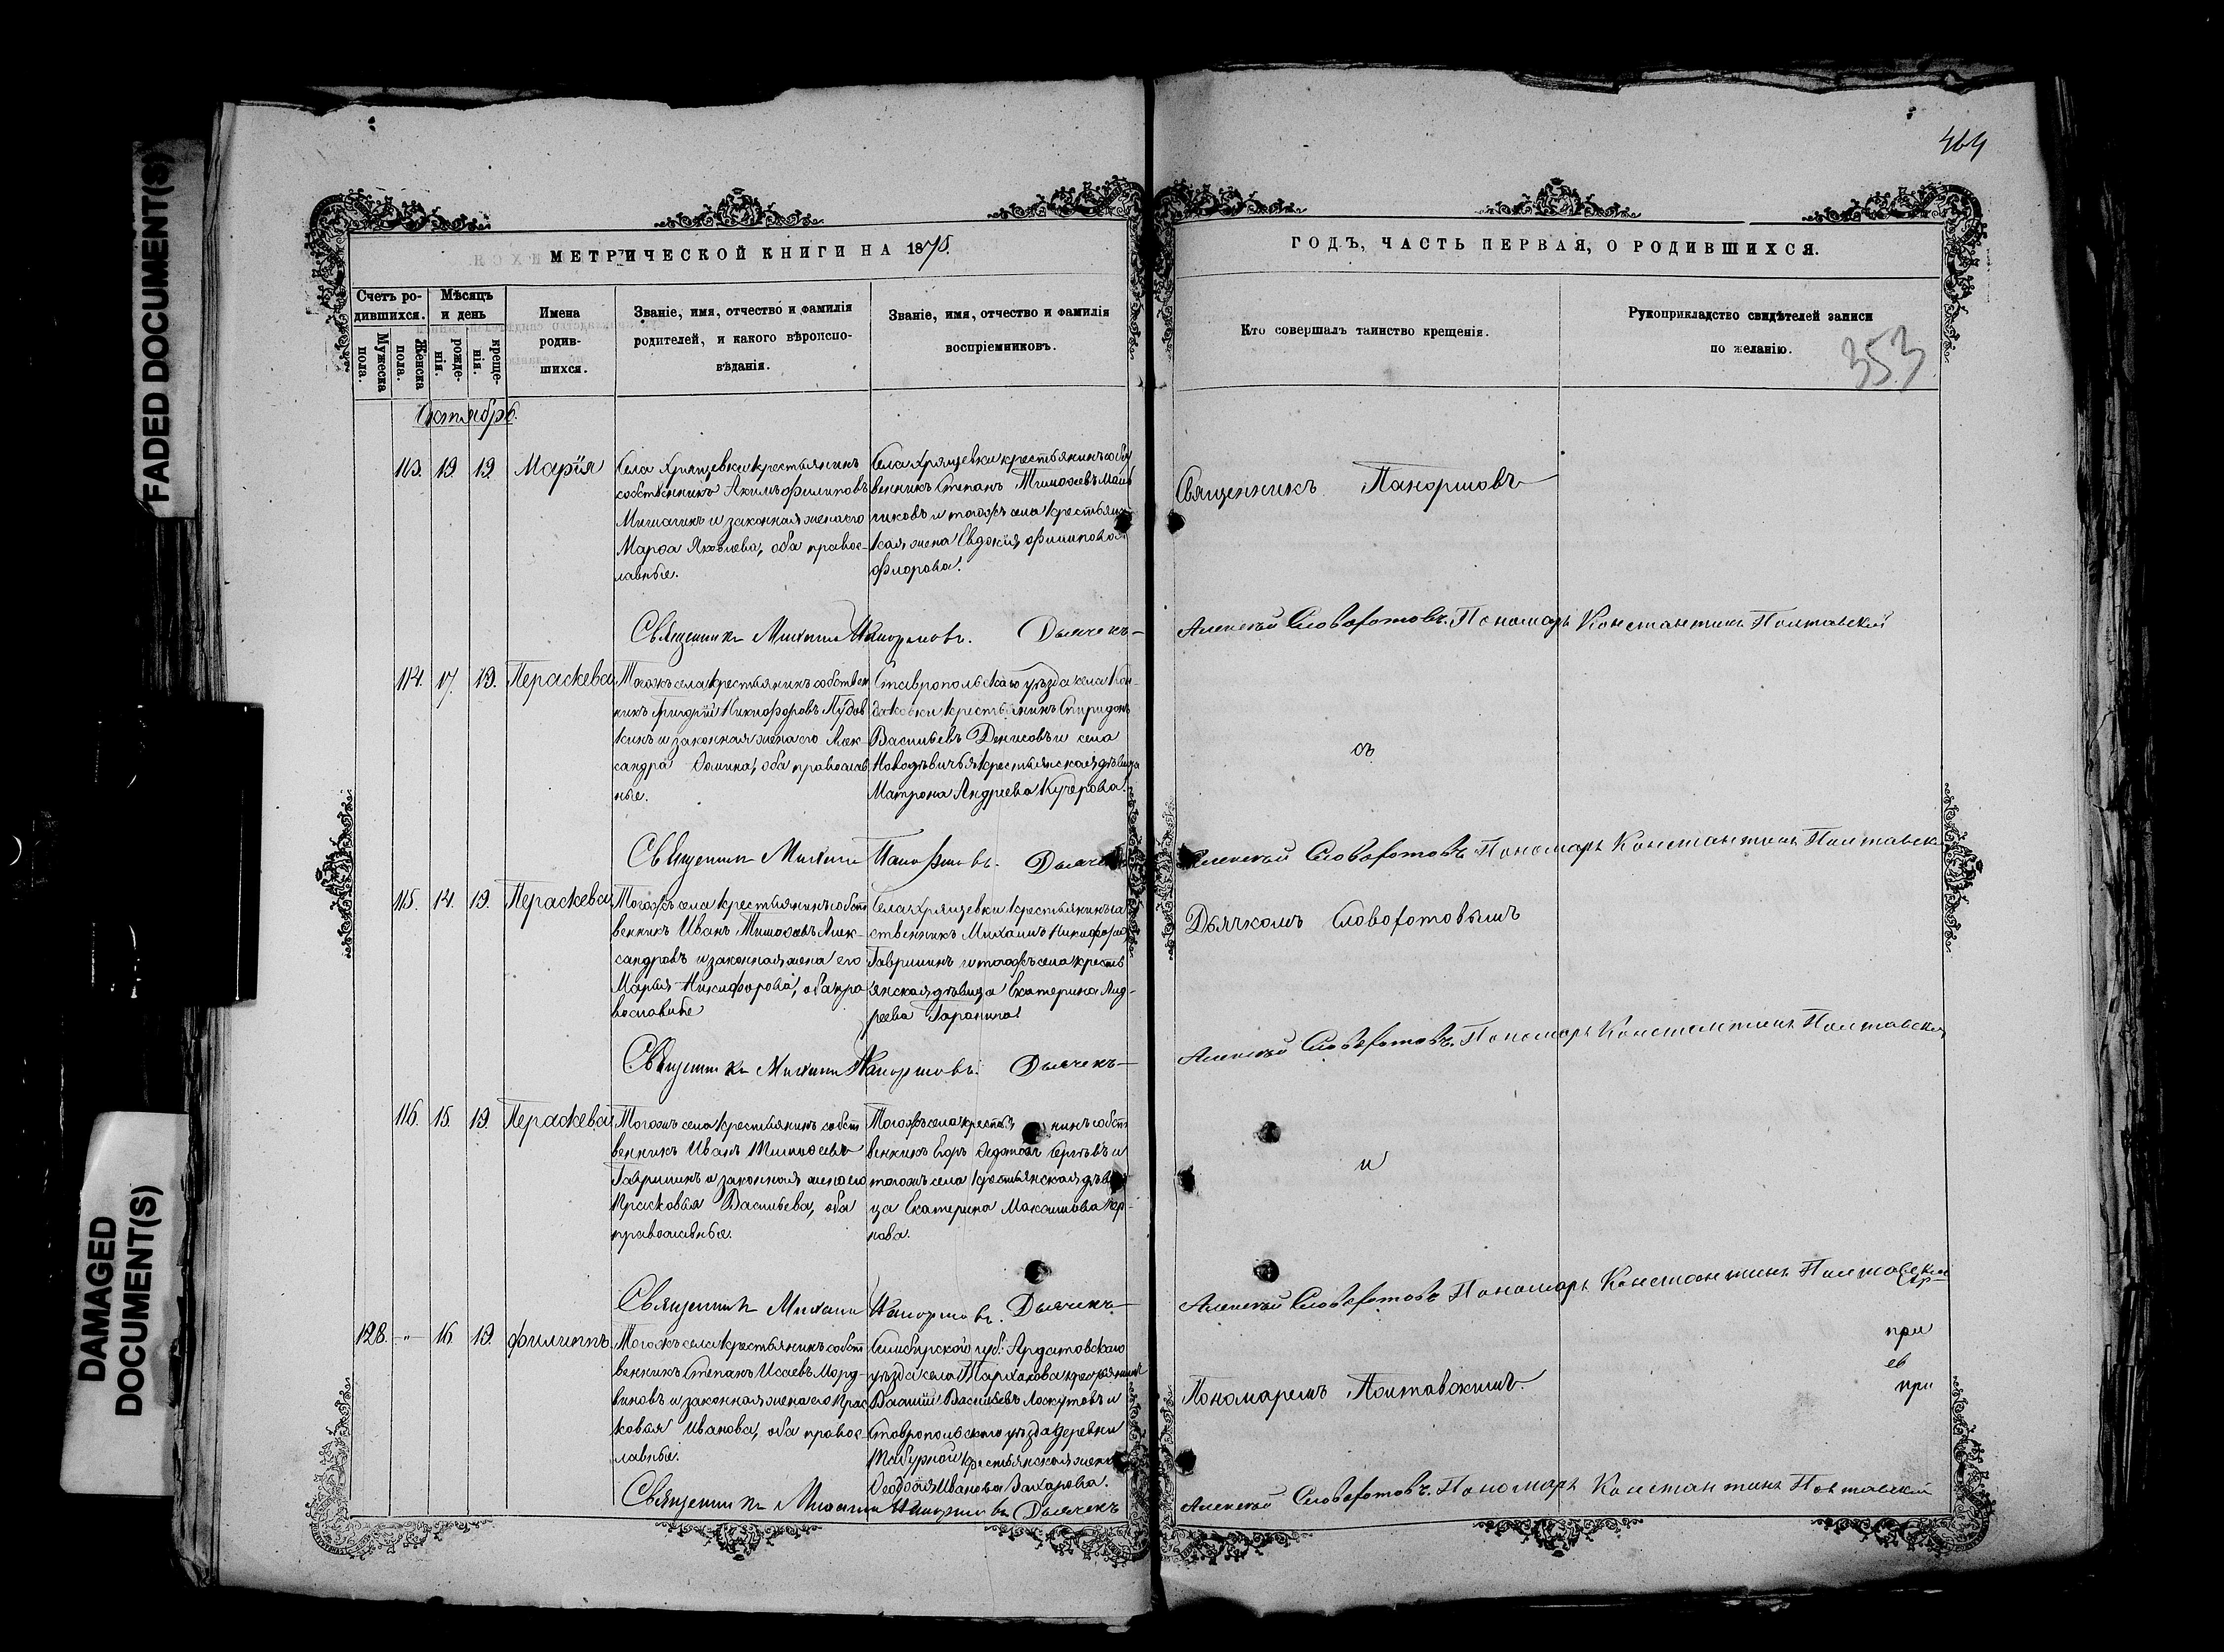 464
FADED DOCUMENT(S)
DAMAGED DOCUMENT(S)
МЕТРИЧЕСКОЙ КНИГИ НА 1875.
ГОДЪ, ЧАСТЬ ПЕРВАЯ, О РОДИВШИХСЯ.
Счетъ родившихся.
Мужеска пола.
Женска пола.
Мѣсяцъ и день
рожденія.
крещенія.
Имена родившихся.
Званіе, имя, отчество и фамилія
родителей, и какого вѣроиспо-
вѣданія.
Званіе, имя, отчество и фамилія
воспріемниковъ.
Кто совершалъ таинство крещенія.
Рукоприкладство свидѣтелей записи
по желанію.
353
Октябрь.
113. 19 19. Марія
Села Хрящевки крестьянинъ
собственникъ Акимъ Филиповъ
Мишагинъ и законная жена его
Марѳа Яковлева, оба правос-
лавные.
Села Хрящевки крестьянинъ собст
венникъ Степанъ Тимоѳеевъ
и тогожъ села крестьян-
ская жена Евдокія Филипова
Фирова.
Священникъ Панормовъ
Священникъ Михаилъ Панормовъ. Дьячекъ
Алексѣй Словохотовъ. Пономарь Константинъ Полтавскій
114. 17. 19. Перaскева
Тогожъ села крестьянинъ собствен
никъ Григорій Никифоровъ Пудов
кинъ и законная жена его Алек-
сандра Ѳомина, оба православ
ные.
Ставропольскаго уѣзда села Кон-
даковки крестьянинъ Спиридонъ
Васильевъ Денисовъ и села
Новодѣвичья крестьянская дѣвица
Матрона Андреева Кучерова.
съ
Священникъ Михаилъ Панормовъ. Дьячекъ
Алексѣй Словохотовъ Пономарь Константинъ Полтавскій
115. 14. 19. Параскева
Тогожъ села крестьянинъ собст
венникъ Иванъ Тимоѳеевъ Алек-
сандровъ и законная жена его
Марья Никифорова, оба пра
вославные
Села Хрящевки крестьянинъ
ственникъ Михаилъ Никифоровъ
Гаврилинъ и тогожъ села кресть
янская дѣвица Екатерина Анд-
реева Гаранина.
Дьячкомъ Словохотовымъ
Священникъ Михаилъ Панормовъ. Дьячекъ
Алексѣй Словохотовъ. Пономарь Константинъ Полтавскій
116. 15. 19. Параскева
Тогожъ села крестьянинъ собст
венникъ Иванъ Тимоѳеевъ
Гаврилинъ и законная жена его
Прасковья Васильева, оба
православные.
Тогожъ села крестьянинъ собст
венникъ Егоръ Ѳедотовъ Сергѣевъ и
тогожъ села крестьянская дѣви
ца Екатерина Максимова
нова.
и
Священникъ Михаилъ Панормовъ. Дьячекъ
Алексѣй Словохотовъ Пономарь Константинъ Полтавскій
128. " 16 19. Филиппъ.
Тогожъ села крестьянинъ собст
венникъ Степанъ Исаевъ Морд-
виновъ и законная жена его Прас
ковья Иванова, оба правос-
лавные.
Симбирской губ. Ардатовскаго
уѣзда села Тарханова крестьянинъ
Василій Васильевъ Лоскутовъ и
Ставропольскаго уѣзда деревни
крестьянская жена
Ѳеодосія Иванова Захарова.
Пономаремъ Полтавскимъ.
при
ев
при
Священникъ Михаилъ Панормовъ Дьячекъ
Алексѣй Словохотовъ. Пономарь Константинъ Полтавскій